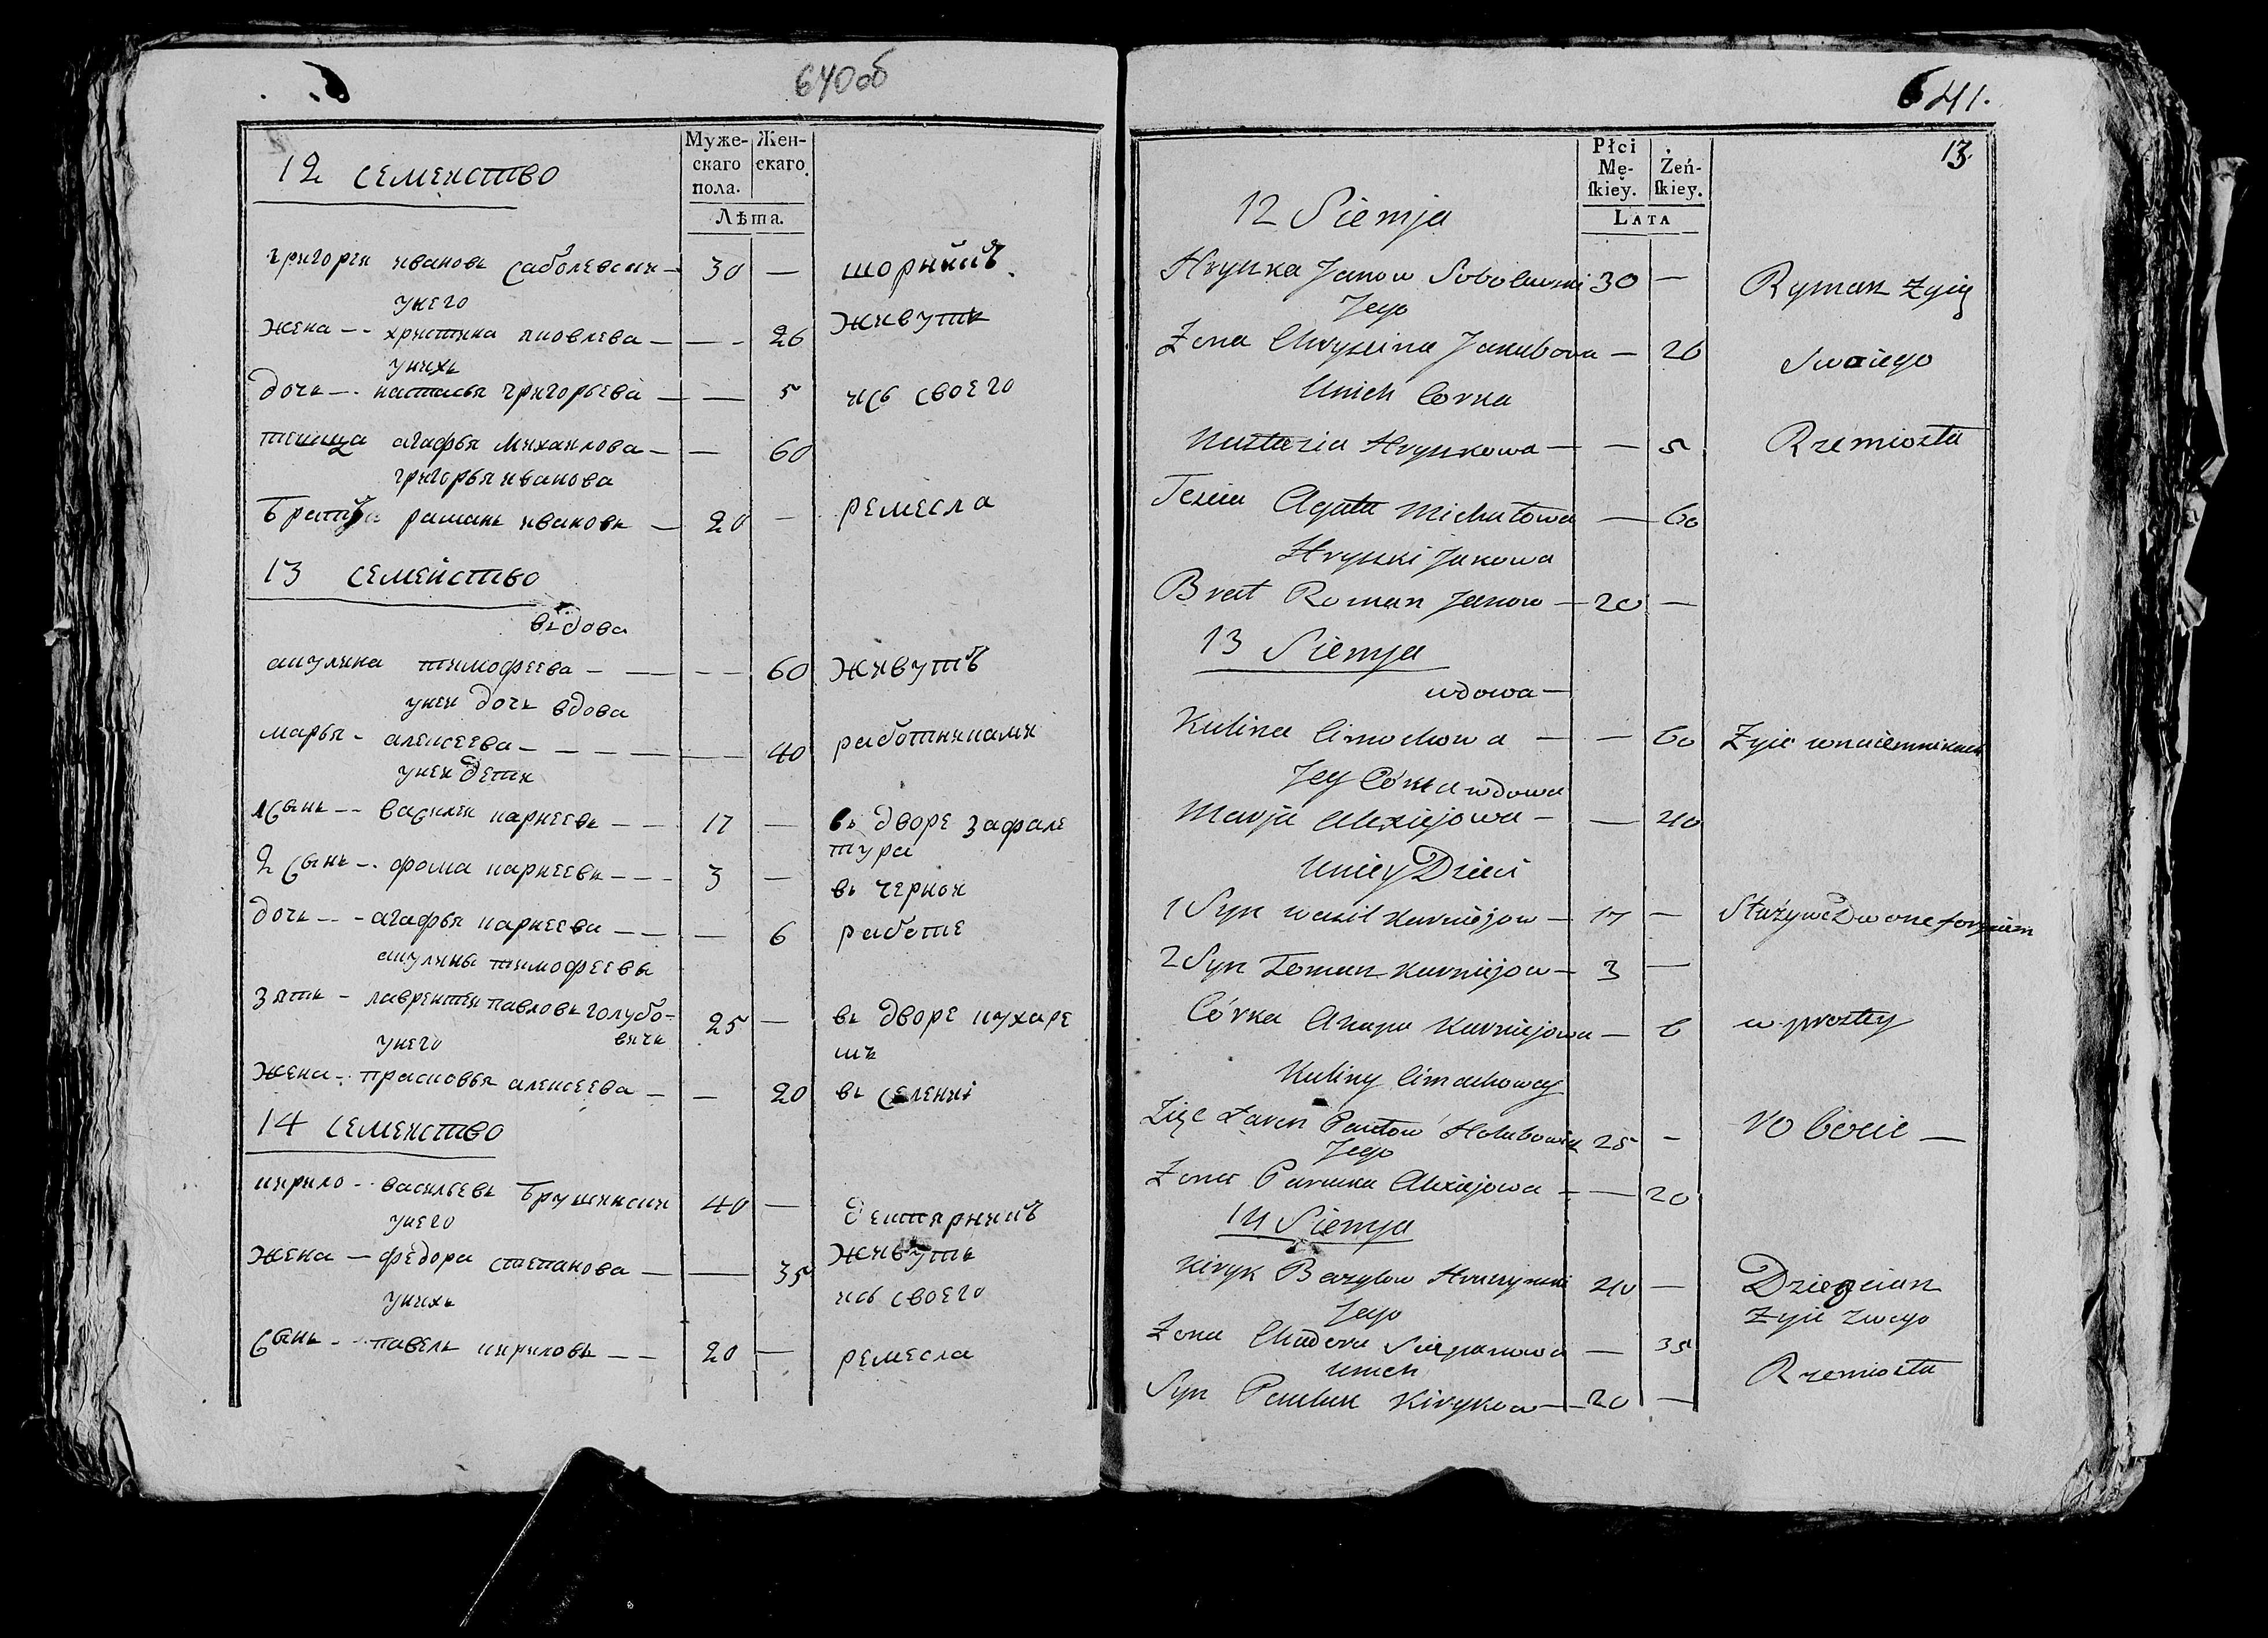 640об
Муже-
скаго
пола.
Жен-
скаго.
Лѣта.
12 семейство
григореи ивановъ саболевски — 30 — шорникъ
унего
жена -- христина яковлева — — 26 живутъ
унихъ
дочь -- настасья григорьева — — 5 исъ своего
тешща агафья михаилова — — 60
григорья иванова
братъ раманъ ивановъ — 20 — ремесла
13 семейство
въдова
акулина тимофеева — — 60 живутъ
унеи дочь вдова
марья - алексеева — — 40 работниками
унеи дети
1 сынъ -- василеи карнеевъ -- 17 — въ дворе зафале
тура
2 сынъ -- фома карнеевъ --- 3 — въ чернои
дочь -- агафья карнеева -- — 6 работе
акулины тимофеевы
зять - лаврентеи павловъ голубо-
вичь 25 — въ дворе кухаре
унего
мъ
жена - прасковья алексеева — — 20 въ селениі
14 семейство
кирило - васильевъ Брушински 40 — дехтярникъ
унего
жена — федора степанова — — 35 живутъ
унихъ
исъ своего
сынъ -- павелъ кириловъ -- 20 — ремесла
641.
13.
Płci
Mę-
skiey.
Żeń-
skiey.
LATA
12 Siemja
Hryszka Janow Sobolewski 30 — Rymarz żyią
Jego
Żona Chrystina Jakubowa — 26 Swoiego
Unich Corka
Nastazia Hryszkowa — — 5 Rzemiosła
Teścia Agata Michałowa — 60
Hryszki Janowa
Brat Roman Janow — 20 —
13 Siemja
wdowa —
Kulina Cimochowa — — 60 Żyie wnaiemnikach
Jey Córka wdowa
Marja Alexiejowa — — 40
Uniey Dzieci
1 Syn wasil Karniejow — 17 —
2 Syn Toman Karniejow — 3 —
Córka Ahapa Karniejowa — 6 w prostey
Kuliny Cimochowey
Zięć Ławren Pawłow Hołubowicz 25 — robocie —
Jego
Żona Paraska Alexiejowa — — 20
14 Siemja
Kiryk Bazylow 40 — Dziegciarz
Jego
Żyie Swego
Żona Chwedora Sciepanowa — 35
Unich
Rzemiosła
Syn Pauluk Kirykow — 20 —